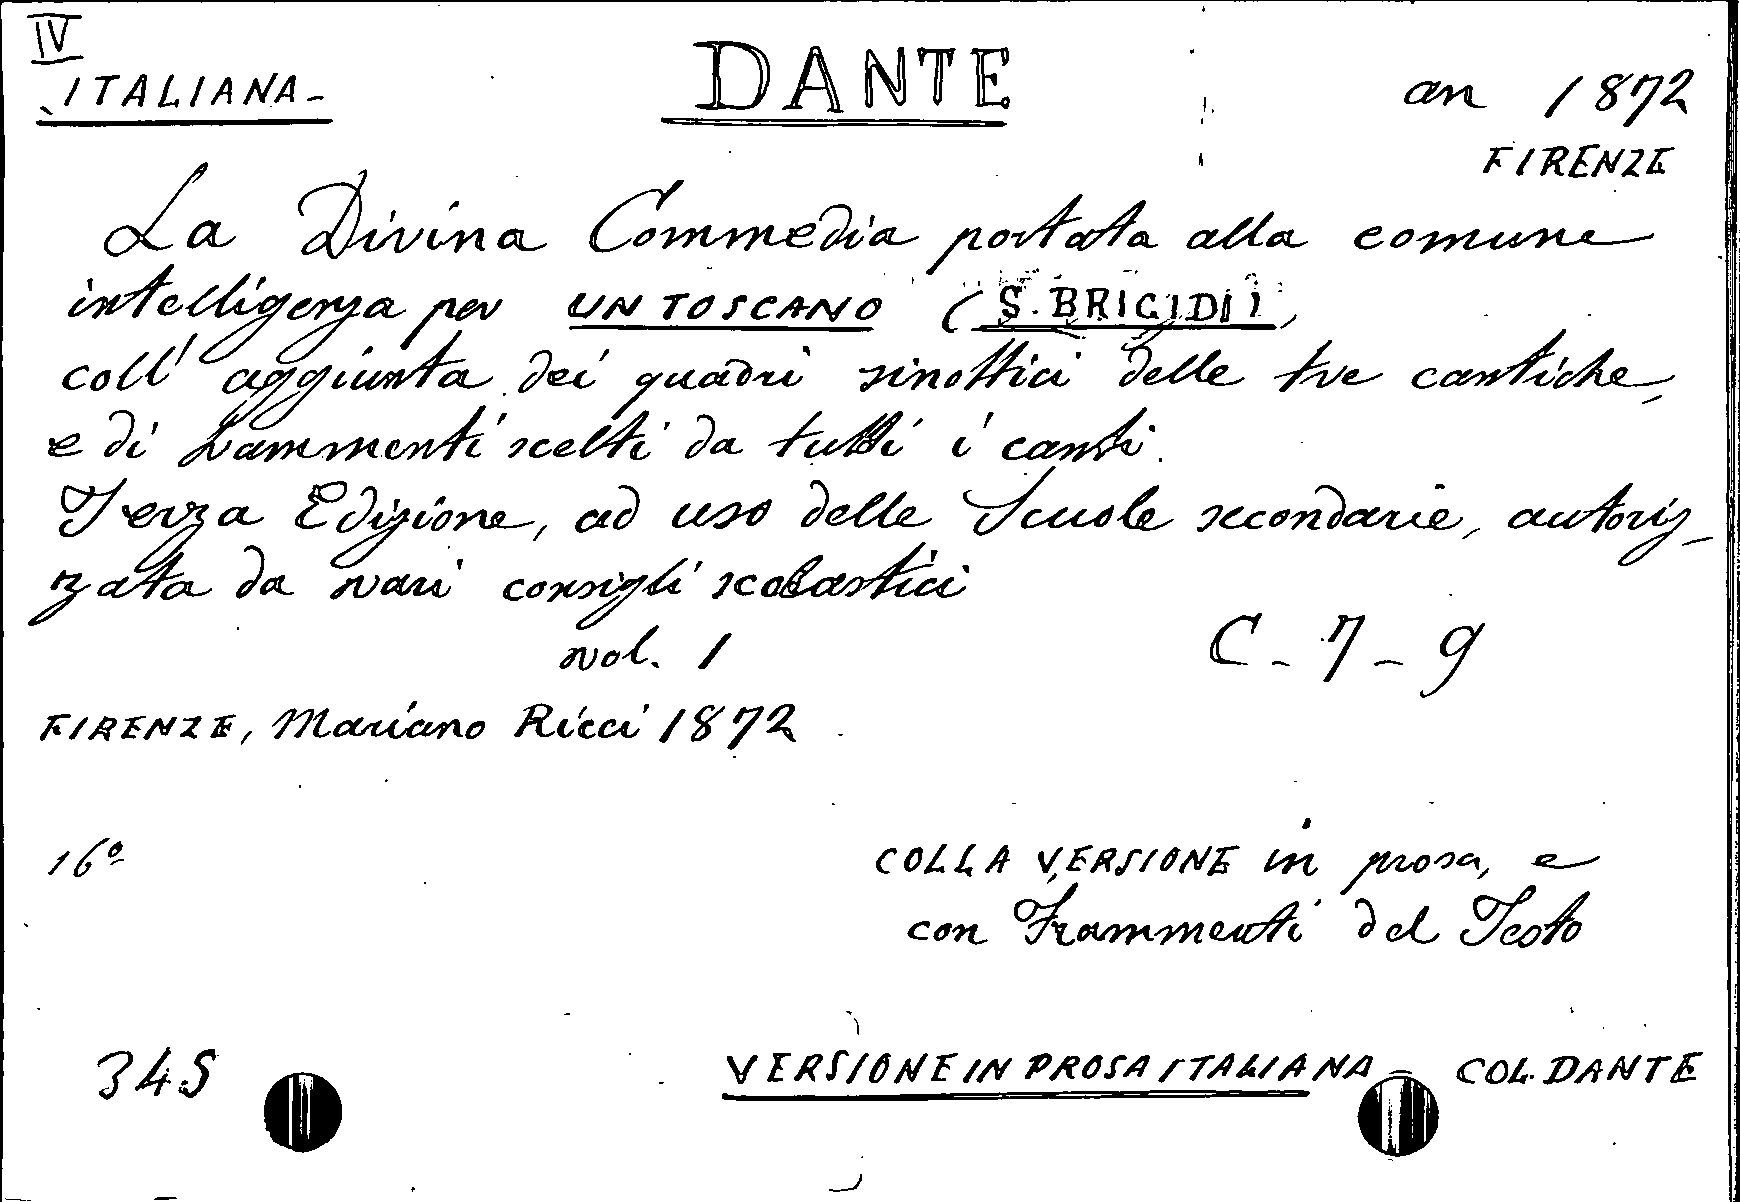 IV
ITALIANA - DANTE an 1872
FIRENZE
La Divina Commedia portata alla comune
intelligenza per UN TOSCANO (S. BRIGIDI),
coll' aggiunta dei quadri sinottici delle tre cantiche,
e di frammenti scelti da tutti i canti.
Terza Edizione, ad uso delle Scuole secondarie, autoriz-
zata da vari consigli scolastici
vol. 1 C - 7 - 9
FIRENZE, Mariano Ricci 1872
16º
COLLA VERSIONE in prosa, e
con Frammenti del Testo
345 VERSIONE IN PROSA ITALIANA - COL. DANTE